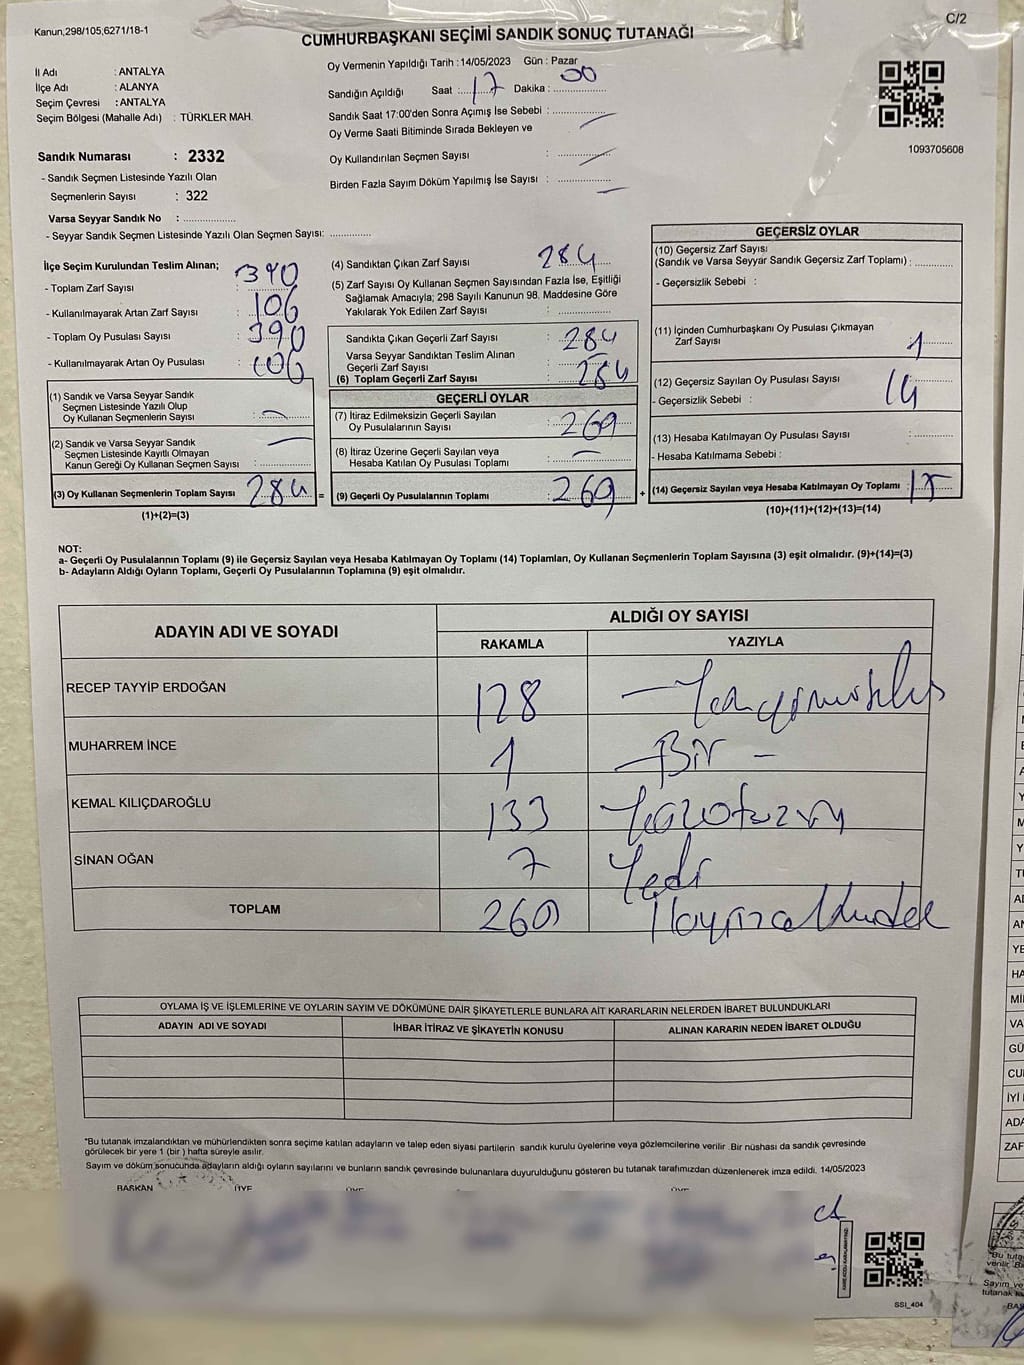 Kanun,298/105,6271/18-1
C/2
CUMHURBAŞKANI SEÇİMİ SANDIK SONUÇ TUTANAĞI
İl Adı : ANTALYA
İlçe Adı : ALANYA
Seçim Çevresi : ANTALYA
Seçim Bölgesi (Mahalle Adı) : TÜRKLER MAH.
Oy Vermenin Yapıldığı Tarih : 14/05/2023 Gün : Pazar
Sandığın Açıldığı Saat : 17 Dakika : 00
Sandık Saat 17:00'den Sonra Açımış İse Sebebi :
Oy Verme Saati Bitiminde Sırada Bekleyen ve
Oy Kullandırılan Seçmen Sayısı :
Birden Fazla Sayım Döküm Yapılmış İse Sayısı :
1093705608
Sandık Numarası : 2332
- Sandık Seçmen Listesinde Yazılı Olan
Seçmenlerin Sayısı : 322
Varsa Seyyar Sandık No :
- Seyyar Sandık Seçmen Listesinde Yazılı Olan Seçmen Sayısı:
İlçe Seçim Kurulundan Teslim Alınan;
- Toplam Zarf Sayısı : 390
- Kullanılmayarak Artan Zarf Sayısı : 106
- Toplam Oy Pusulası Sayısı : 390
- Kullanılmayarak Artan Oy Pusulası : 106
(1) Sandık ve Varsa Seyyar Sandık
Seçmen Listesinde Yazılı Olup
Oy Kullanan Seçmenlerin Sayısı :
(2) Sandık ve Varsa Seyyar Sandık
Seçmen Listesinde Kayıtlı Olmayan
Kanun Gereği Oy Kullanan Seçmen Sayısı :
(3) Oy Kullanan Seçmenlerin Toplam Sayısı : 284 =
(1)+(2)=(3)
(4) Sandıktan Çıkan Zarf Sayısı : 284
(5) Zarf Sayısı Oy Kullanan Seçmen Sayısından Fazla İse, Eşitliği
Sağlamak Amacıyla; 298 Sayılı Kanunun 98. Maddesine Göre
Yakılarak Yok Edilen Zarf Sayısı :
Sandıkta Çıkan Geçerli Zarf Sayısı : 284
Varsa Seyyar Sandıktan Teslim Alınan
Geçerli Zarf Sayısı :
(6) Toplam Geçerli Zarf Sayısı : 284
GEÇERLİ OYLAR
(7) İtiraz Edilmeksizin Geçerli Sayılan
Oy Pusulalarının Sayısı : 269
(8) İtiraz Üzerine Geçerli Sayılan veya
Hesaba Katılan Oy Pusulası Toplamı :
(9) Geçerli Oy Pusulalarının Toplamı : 269 +
GEÇERSİZ OYLAR
(10) Geçersiz Zarf Sayısı
(Sandık ve Varsa Seyyar Sandık Geçersiz Zarf Toplamı) :
- Geçersizlik Sebebi :
(11) İçinden Cumhurbaşkanı Oy Pusulası Çıkmayan
Zarf Sayısı : 1
(12) Geçersiz Sayılan Oy Pusulası Sayısı : 14
- Geçersizlik Sebebi :
(13) Hesaba Katılmayan Oy Pusulası Sayısı :
- Hesaba Katılmama Sebebi :
(14) Geçersiz Sayılan veya Hesaba Katılmayan Oy Toplamı : 15
(10)+(11)+(12)+(13)=(14)
NOT:
a- Geçerli Oy Pusulalarının Toplamı (9) ile Geçersiz Sayılan veya Hesaba Katılmayan Oy Toplamı (14) Toplamları, Oy Kullanan Seçmenlerin Toplam Sayısına (3) eşit olmalıdır. (9)+(14)=(3)
b- Adayların Aldığı Oyların Toplamı, Geçerli Oy Pusulalarının Toplamına (9) eşit olmalıdır.
ADAYIN ADI VE SOYADI
ALDIĞI OY SAYISI
RAKAMLA YAZIYLA
RECEP TAYYİP ERDOĞAN 128
MUHARREM İNCE 1 - Bir -
KEMAL KILIÇDAROĞLU 133
SİNAN OĞAN 7 Yedi
TOPLAM 269
OYLAMA İŞ VE İŞLEMLERİNE VE OYLARIN SAYIM VE DÖKÜMÜNE DAİR ŞİKAYETLERLE BUNLARA AİT KARARLARIN NELERDEN İBARET BULUNDUKLARI
ADAYIN ADI VE SOYADI İHBAR İTİRAZ VE ŞİKAYETİN KONUSU ALINAN KARARIN NEDEN İBARET OLDUĞU
*Bu tutanak imzalandıktan ve mühürlendikten sonra seçime katılan adayların ve talep eden siyasi partilerin sandık kurulu üyelerine veya gözlemcilerine verilir .Bir nüshası da sandık çevresinde
görülecek bir yere 1 (bir ) hafta süreyle asılır.
Sayım ve döküm sonucunda adayların aldığı oyların sayılarını ve bunların sandık çevresinde bulunanlara duyurulduğunu gösteren bu tutanak tarafımızdan düzenlenerek imza edildi. 14/05/2023
BAŞKAN ÜYE ÜYE ÜYE
SSI_404